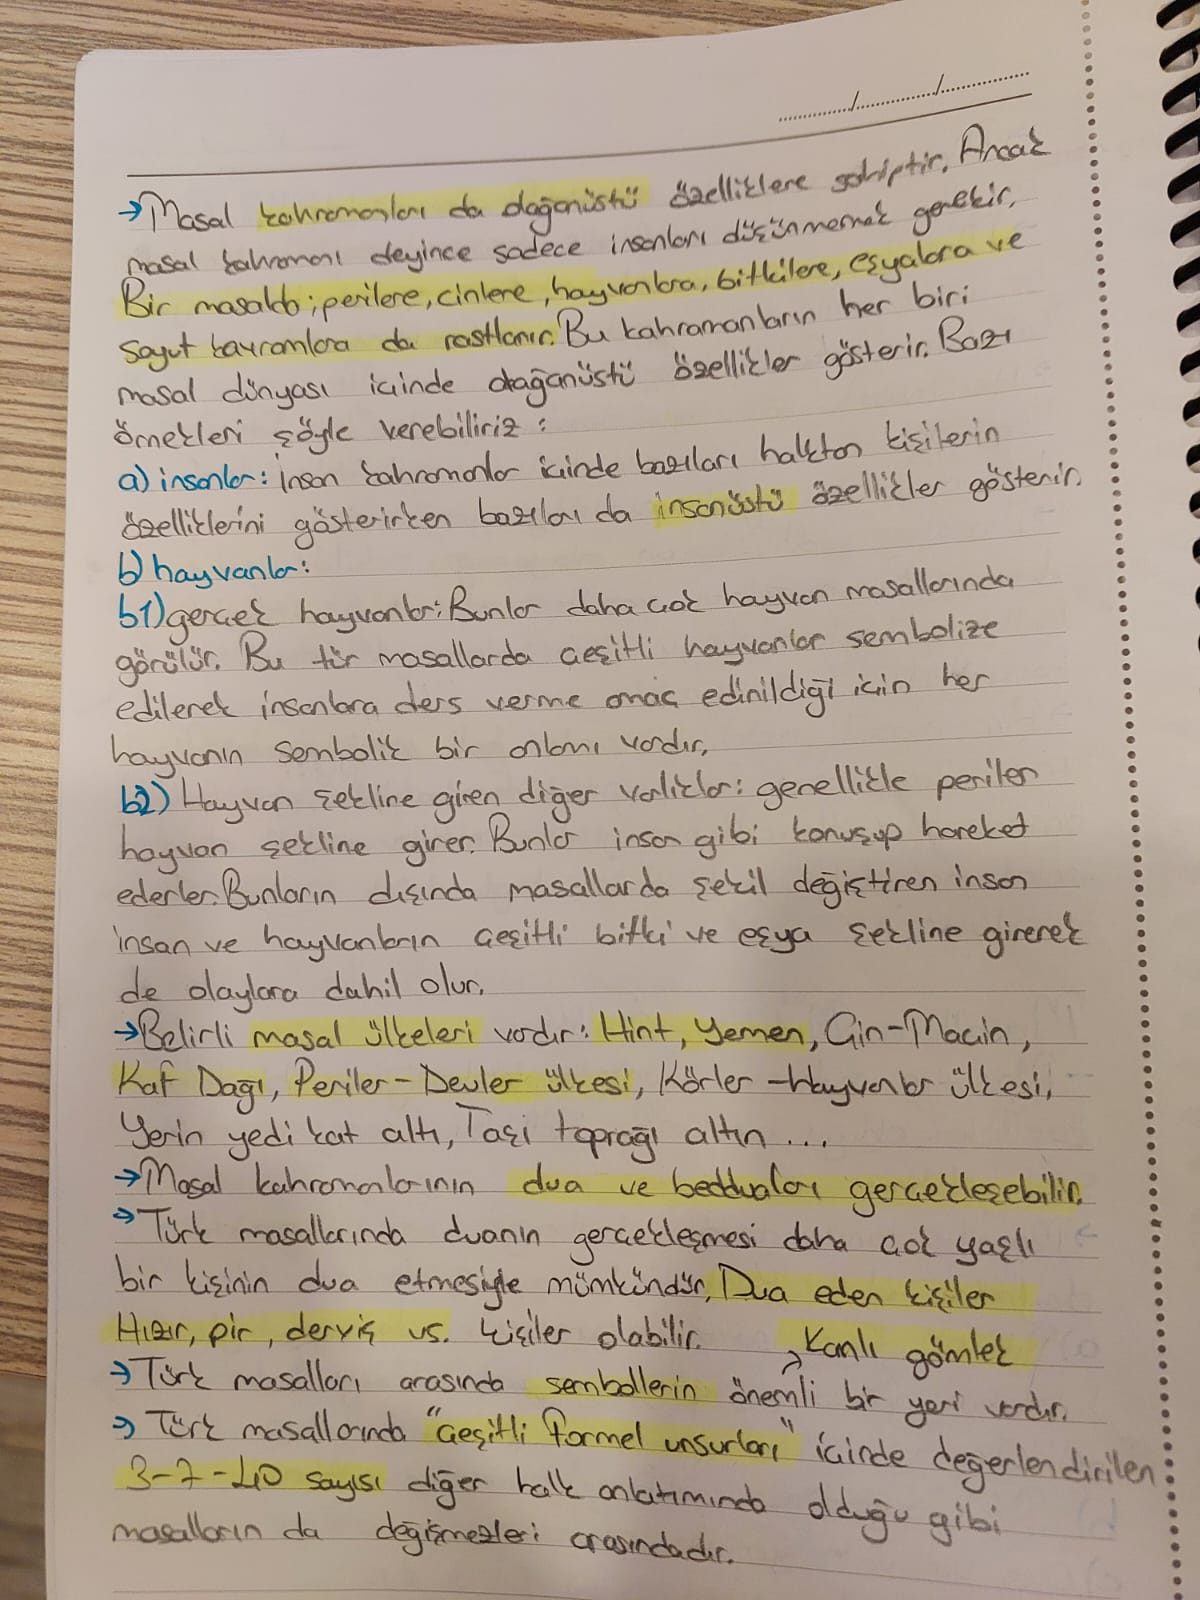 →Masal kahramanları da olağanüstü özelliklere sahiptir. Ancak
masal kahramanı deyince sadece insanları düşünmemek gerekir.
Bir masalda; perilere, cinlere, hayvanlara, bitkilere, eşyalara ve
soyut kavramlara da rastlanır. Bu kahramanların her biri
masal dünyası içinde olağanüstü özellikler gösterir. Bazı
örnekleri şöyle verebiliriz:
a) insanlar: İnsan kahramanlar içinde bazıları halktan kişilerin
özelliklerini gösterirken bazıları da insanüstü özellikler gösterir.
b) hayvanlar:
b1) gerçek hayvanlar: Bunlar daha çok hayvan masallarında
görülür. Bu tür masallarda çeşitli hayvanlar sembolize
edilerek insanlara ders verme amaç edinildiği için her
hayvanın sembolik bir anlamı vardır.
b2) Hayvan şekline giren diğer varlıklar: genellikle periler
hayvan şekline girer. Bunlar insan gibi konuşup hareket
ederler. Bunların dışında masallarda şekil değiştiren insan
insan ve hayvanların çeşitli bitki ve eşya şekline girerek
de olaylara dahil olur.
→Belirli masal ülkeleri vardır: Hint, Yemen, Çin-Maçin,
Kaf Dağı, Periler-Devler ülkesi, Körler-Hayvanlar ülkesi,
Yerin yedi kat altı, Taşı toprağı altın ...
→Masal kahramanlarının dua ve bedduaları gerçekleşebilir.
→Türk masallarında duanın gerçekleşmesi daha çok yaşlı
bir kişinin dua etmesiyle mümkündür. Dua eden kişiler
Hızır, pir, derviş vs. kişiler olabilir.
Kanlı gömlek
→Türk masalları arasında sembollerin önemli bir yeri vardır.
→Türk masallarında "çeşitli formel unsurları" içinde değerlendirilen
3-7-40 sayısı diğer halk anlatımında olduğu gibi
masalların da değişmezleri arasındadır.